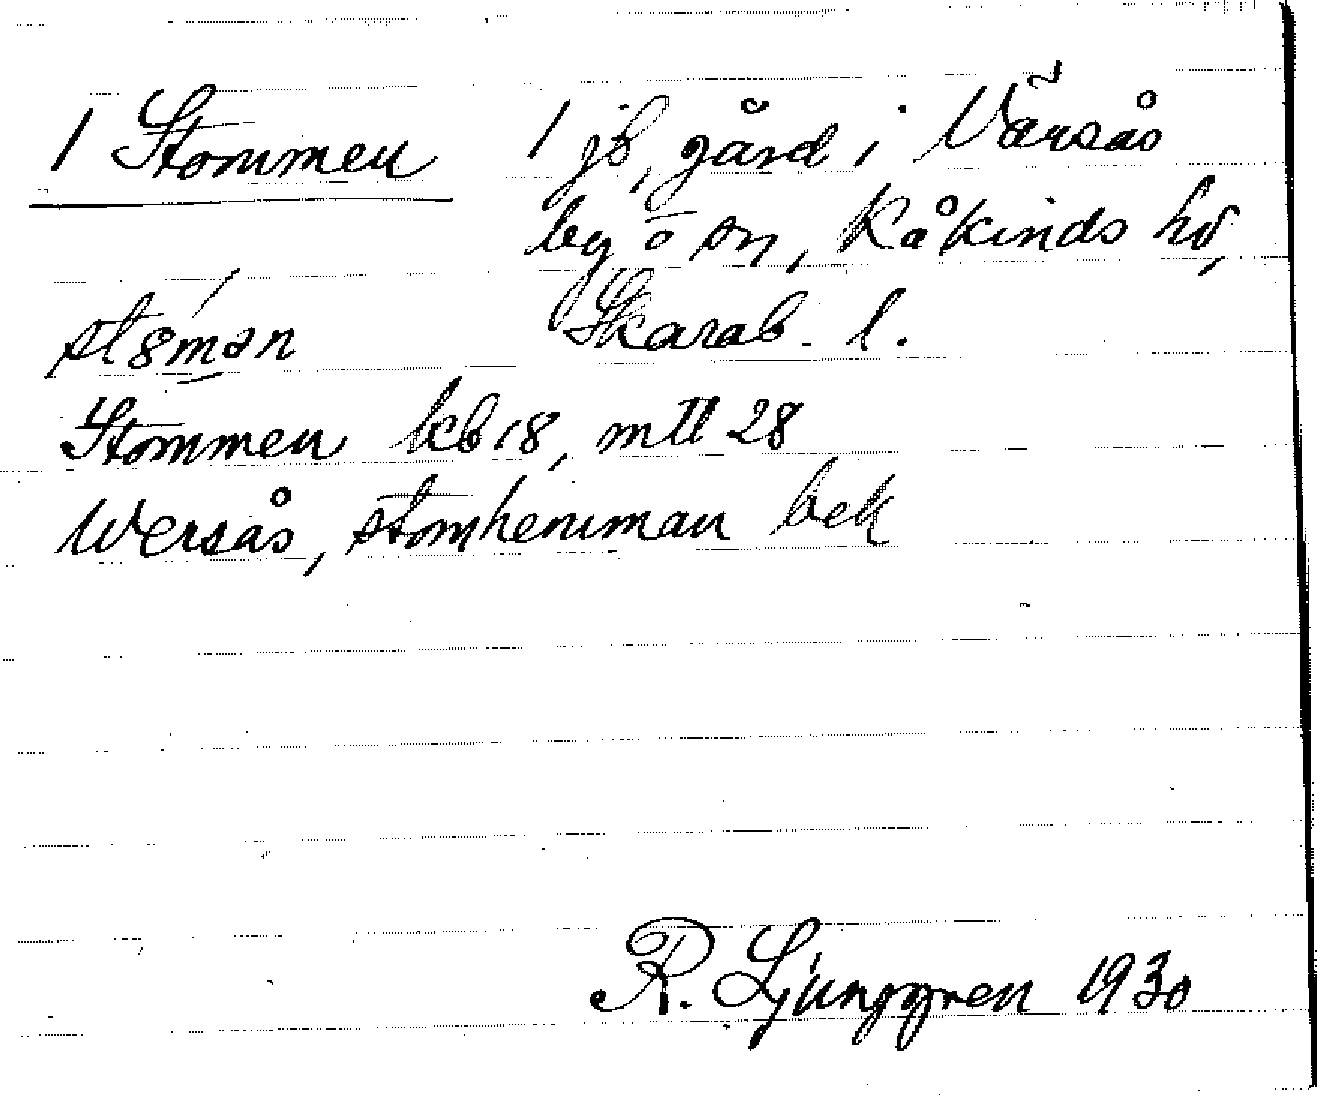 1 Stommen 1 jb, gård i Värsås
by o sn, Kåkinds hd,
st8mən Skarab. l.
Stommen kb 18, mtl 28
Wersås, stomhemman bek
R. Ljunggren 1930